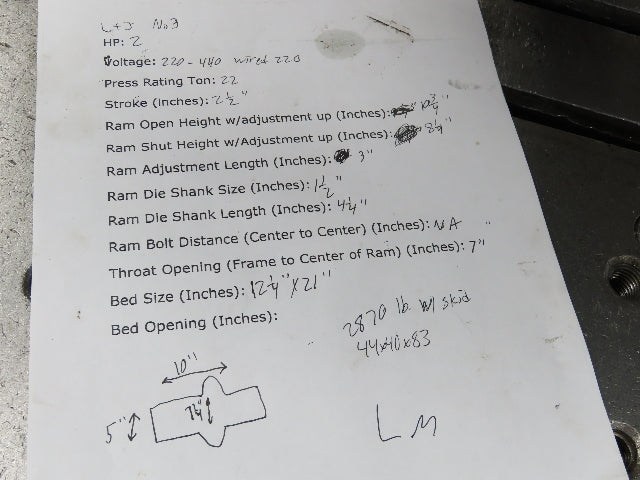 L+J No3
HP: 2
Voltage: 220-440 wired 220
Press Rating Ton: 22
Stroke (Inches): 2½"
Ram Open Height w/adjustment up (Inches): 10¾"
Ram Shut Height w/Adjustment up (Inches): 8¼"
Ram Adjustment Length (Inches): 3"
Ram Die Shank Size (Inches): 1½"
Ram Die Shank Length (Inches): 4¼"
Ram Bolt Distance (Center to Center) (Inches): NA "
Throat Opening (Frame to Center of Ram) (Inches): 7"
Bed Size (Inches): 12¼" X 21"
Bed Opening (Inches):
2870 lb. w/ skid
44x40x83
10"
5"
7¼"
LM